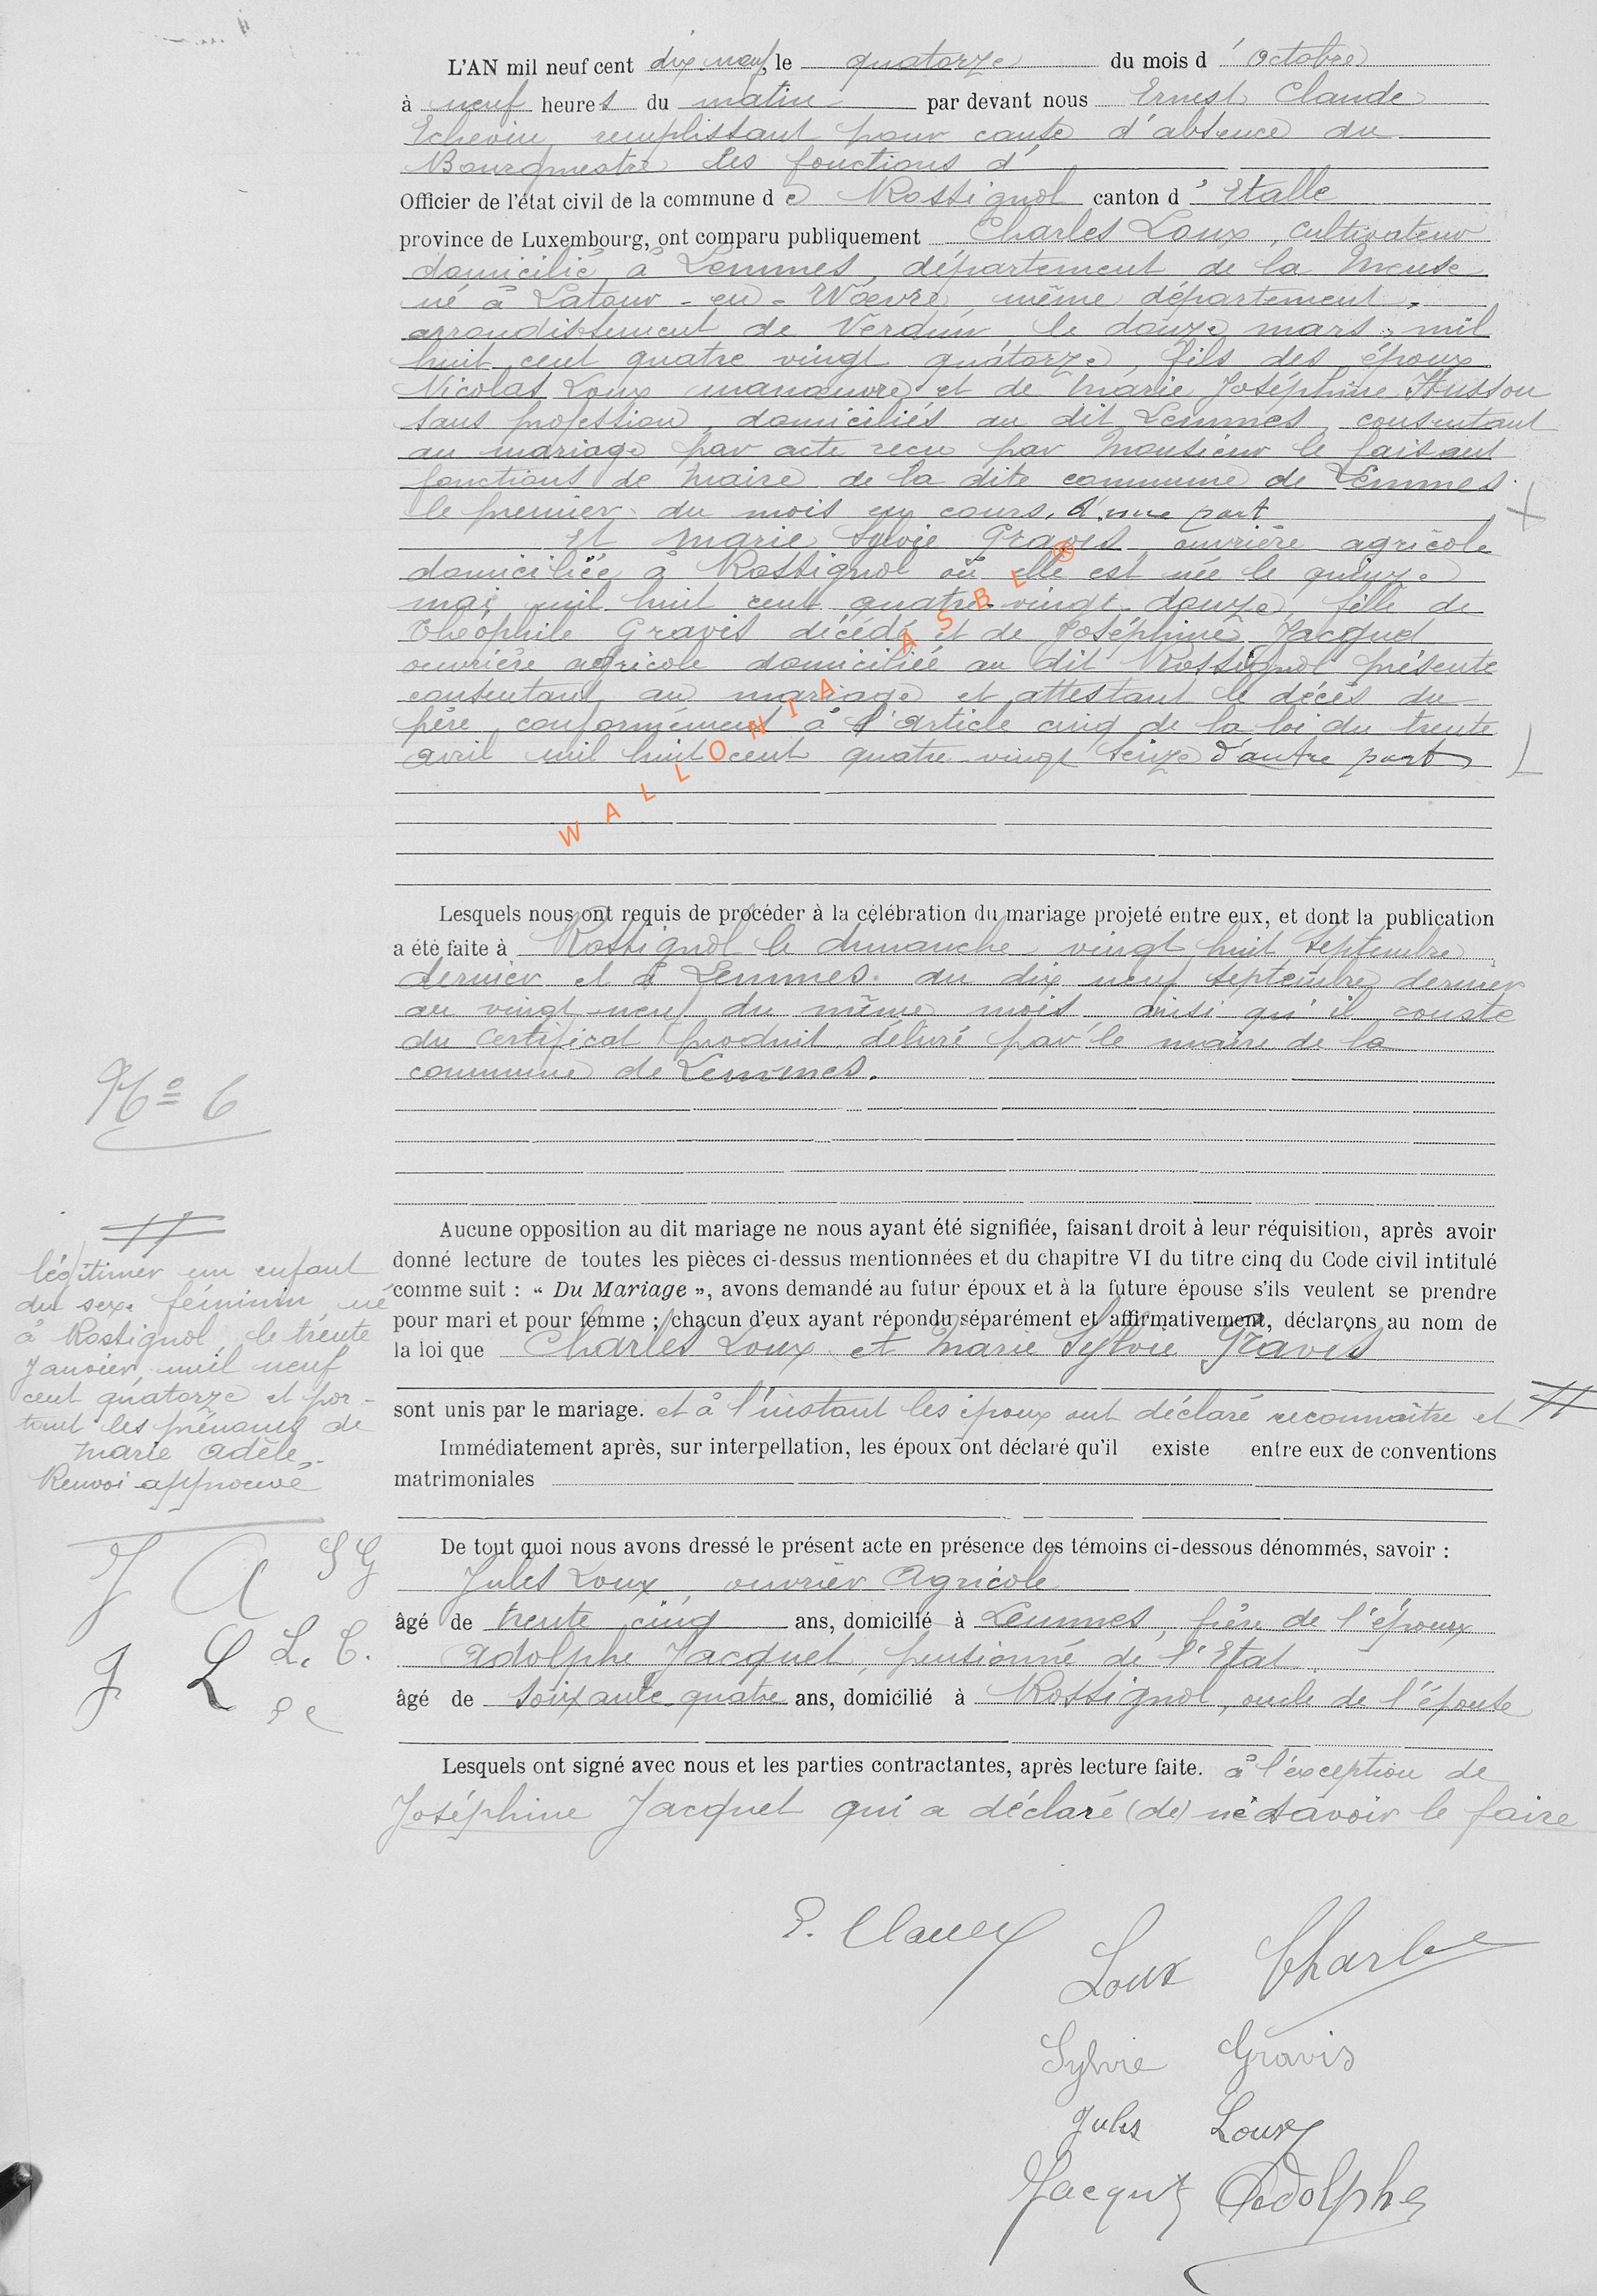 L'AN mil neuf cent dix neuf, le quatorze du mois d'Octobre
à neuf heures du matin par devant nous Ernest Claude
Echevin remplissant pour cause d'absence du
Bourgmestre les fonctions d'
Officier de l'état civil de la commune de Rossignol canton d'Etalle
province de Luxembourg, ont comparu publiquement Charles Loux, cultivateur
domicilié à Lemmes, département de la Meuse
né à Latour-en-Woëvre, même département,
arrondissement de Verdun, le douze mars mil
huit cent quatre vingt quatorze, fils des époux
Nicolas Loux manœuvre et de Marie Joséphine Husson
sans profession, domiciliés au dit Lemmes, consentant
au mariage par acte reçu par Monsieur le faisant
fonctions de Maire de la dite commune de Lemmes
le premier du mois en cours, d'une part
Et Marie Sylvie Gravis, ouvrière agricole
domiciliée à Rossignol où elle est née le quinze
mai mil huit cent quatre-vingt-douze, fille de
Théophile Gravis décédé et de Joséphine Jacquet
ouvrière agricole domiciliée au dit Rossignol présente
consentant au mariage et attestant le décès du
père conformément à l'article cinq de la loi du trente
avril mil huit cent quatre-vingt seize d'autre part
WALLONIA ASBL ®
Lesquels nous ont requis de procéder à la célébration du mariage projeté entre eux, et dont la publication
a été faite à Rossignol le dimanche vingt huit septembre
dernier et à Lemmes du dix neuf septembre dernier
au vingt-neuf du même mois ainsi qu'il conste
du certificat produit délivré par le maire de la
commune de Lemmes.
N° 6
Aucune opposition au dit mariage ne nous ayant été signifiée, faisant droit à leur réquisition, après avoir
donné lecture de toutes les pièces ci-dessus mentionnées et du chapitre VI du titre cinq du Code civil intitulé
comme suit : « Du Mariage », avons demandé au futur époux et à la future épouse s'ils veulent se prendre
pour mari et pour femme ; chacun d'eux ayant répondu séparément et affirmativement, déclarons au nom de
la loi que Charles Loux et Marie Sylvie Gravis
sont unis par le mariage. et à l'instant les époux ont déclaré reconnaître et #
#
légitimer un enfant
du sexe féminin né
à Rossignol le trente
Janvier mil neuf
cent quatorze et por-
tant les prénoms de
Marie Adèle.
Renvoi approuvé
J A S G
J L L. C.
E C
Immédiatement après, sur interpellation, les époux ont déclaré qu'il existe entre eux de conventions
matrimoniales
De tout quoi nous avons dressé le présent acte en présence des témoins ci-dessous dénommés, savoir :
Jules Loux, ouvrier Agricole
âgé de trente cinq ans, domicilié à Lemmes, frère de l'époux
Adolphe Jacquet, pensionné de l'Etat
âgé de soixante quatre ans, domicilié à Rossignol, oncle de l'épouse
Lesquels ont signé avec nous et les parties contractantes, après lecture faite. à l'exception de
Joséphine Jacquet qui a déclaré (de) ne savoir le faire
E. Claude
Loux Charles
Sylvie Gravis
Jules Loux
Jacquet Adolphe